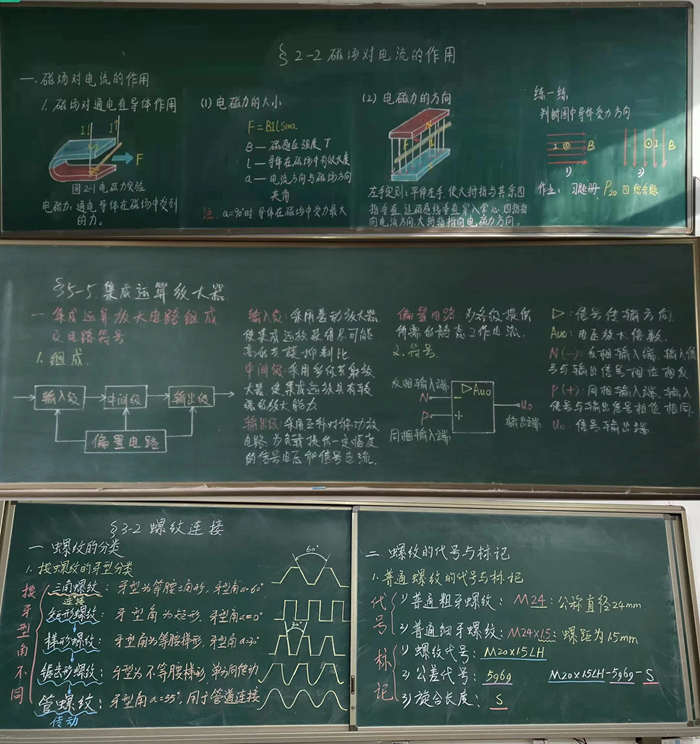 §2-2磁场对电流的作用
一.磁场对电流的作用
1.磁场对通电直导体作用
F
图2-1电磁力实验
电磁力:通电导体在磁场中受到
的力。
(1)电磁力的大小
F=BILsinα
B—磁感应强度 T
l—导体在磁场中有效长度
α—电流方向与磁场方向
夹角
注:α=90°时,导体在磁场中受力最大
(2)电磁力的方向
左手定则:平伸左手,使大拇指与其余四
指垂直,让磁感线垂直穿入掌心,四指指
向电流方向,大拇指指向电磁力方向。
练一练
判断图中导体受力方向
I B
I B
1)
作业:习题册 P20 四.综合题
§5-5.集成运算放大器
一.集成运算放大电路组成
及电路符号
1.组成.
输入级
中间级
输出级
偏置电路
输入级:采用差动放大器,
使集成运放获得尽可能
高的共模抑制比
中间级:采用多级共射放
大器,使集成运放具有较
强的放大能力
输出级:采用互补对称功放
电路,为负载提供一定幅度
的信号电压和信号电流.
偏置电路:为各级提供
所需的静态工作电流.
2.符号.
反相输入端
N
P
同相输入端
▷Auo
uo
输出端
▷:信号传输方向.
Auo:电压放大倍数.
N(-):反相输入端,输入信
号与输出信号相位相反
P(+):同相输入端,输入
信号与输出信号相位相同
uo:信号输出端.
§3-2螺纹连接
一 螺纹的分类
1.按螺纹的牙型分类
按牙型角不同
三角螺纹:牙型为等腰三角形,牙型角α=60°
连接
矩形螺纹:牙型角为矩形,牙型角α=0°
梯形螺纹:牙型角为等腰梯形,牙型角α=30°
锯齿形螺纹:牙型为不等腰梯形,单方向传动
管螺纹:牙型角α=55°,用于管道连接
传动
60°
30°
二 螺纹的代号与标记
1.普通螺纹的代号与标记
代号
1)普通粗牙螺纹:M24:公称直径24mm
2)普通细牙螺纹:M24×1.5:螺距为1.5mm
标记
1)螺纹代号:M20×1.5LH
2)公差代号:5g6g M20×1.5LH-5g6g-S
3)旋合长度:S